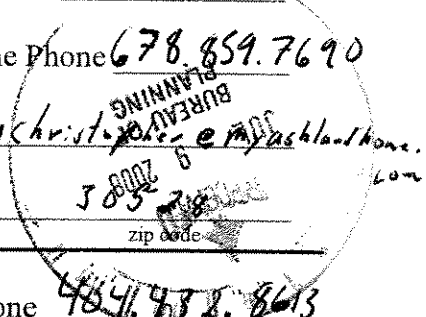 ne Phone 678.859.7690
christopher@myashlandhome.
com
BUREAU OF
PLANNING
9 2008
zip code
one 404.432.8613